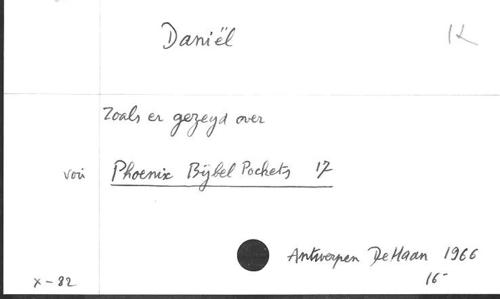 Daniël
K
Zoals er gezeyd over
voir Phoenix Bijbel Pockets 17
Antwerpen De Haan 1966
16-
x-82